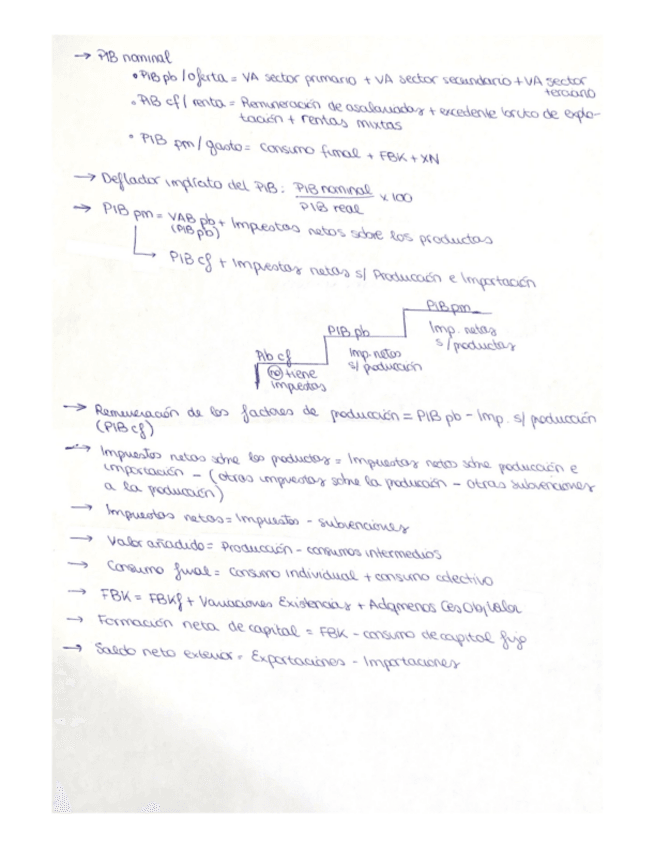 → PIB nominal
• PIB pb / oferta = VA sector primario + VA sector secundario + VA sector
terciario
• PIB cf / renta = Remuneración de asalariados + excedente bruto de explo-
tación + rentas mixtas
• PIB pm / gasto = Consumo final + FBK + XN
→ Deflador implícito del PIB: PIB nominal / PIB real x 100
→ PIB pm = VAB pb + Impuestos netos sobre los productos
(PIB pb)
PIB cf + Impuestos netos s/ Producción e Importación
PIB pm
PIB pb
Imp. netos
s/ productos
Pib cf
Imp. netos
s/ producción
no tiene
impuestos
→ Remuneración de los factores de producción = PIB pb - Imp. s/ producción
(PIB cf)
→ Impuestos netos sobre los productos = Impuestos netos sobre producción e
importación - (otros impuestos sobre la producción - otras subvenciones
a la producción)
→ Impuestos netos = Impuestos - subvenciones
→ Valor añadido = Producción - consumos intermedios
→ Consumo final = consumo individual + consumo colectivo
→ FBK = FBKf + Variaciones Existencias + Adqmenos Ces Obj Valor
→ Formación neta de capital = FBK - consumo de capital fijo
→ Saldo neto exterior = Exportaciones - Importaciones